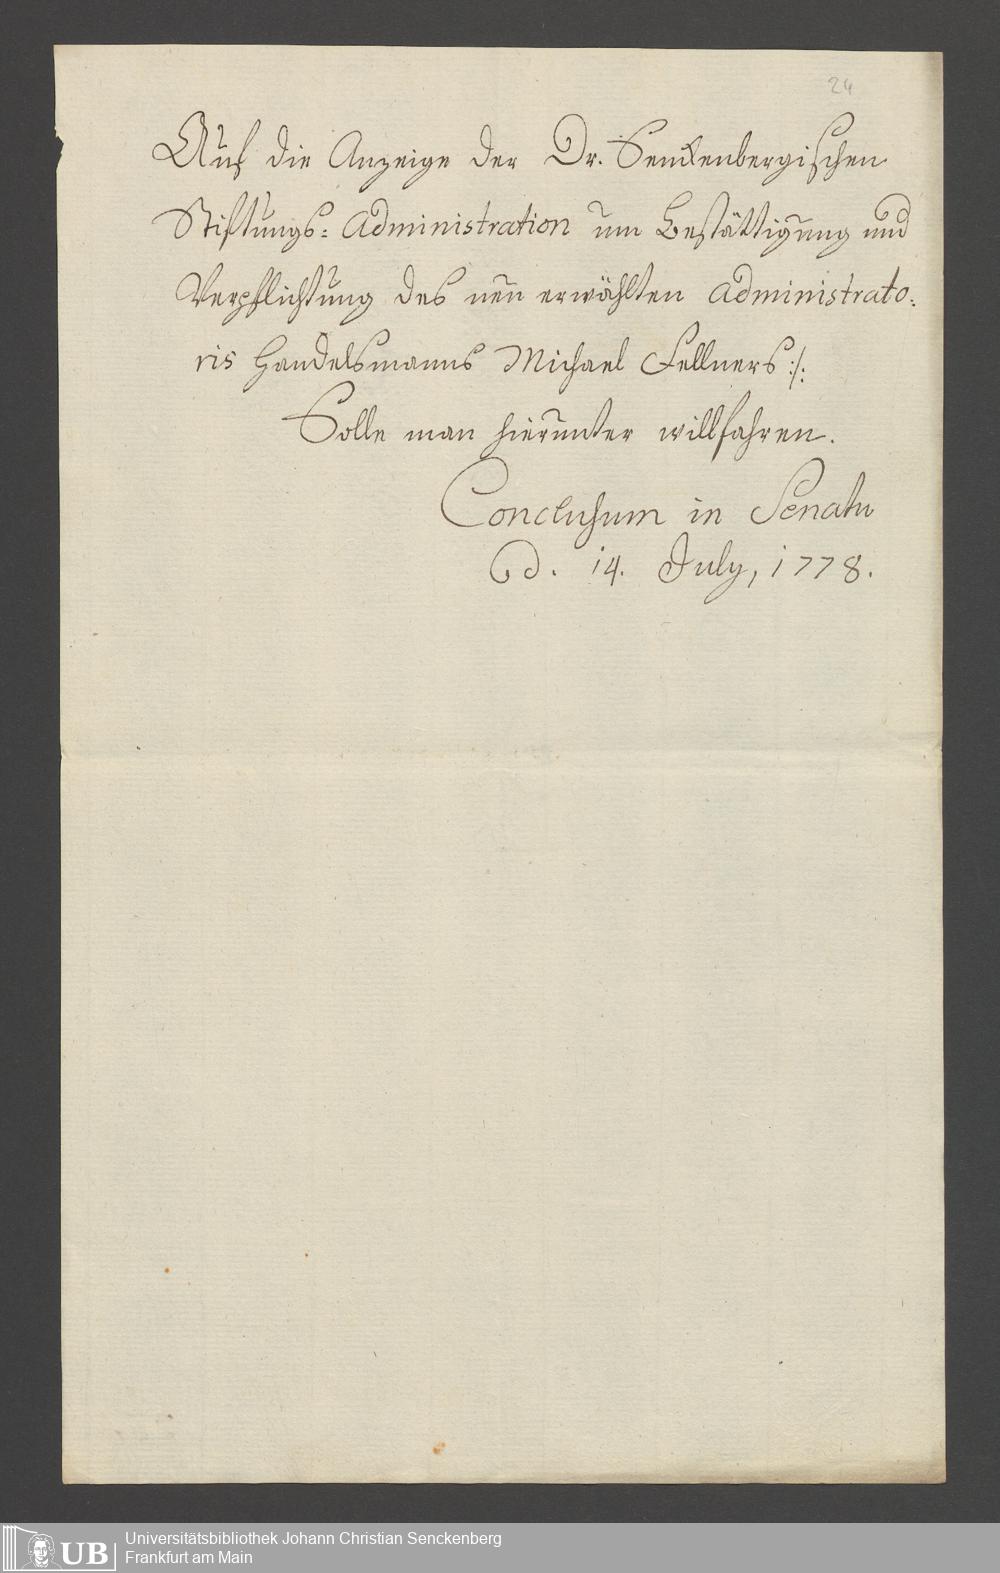 24
Auf die Anzeige der Dr. Senckenbergischen
Stiftungs-Administration um Bestättigung und
Verpflichtung des neu erwählten Administrato-
ris Handelsmanns Michael Fellners :/:
Solle man hierunter willfahren.
Conclusum in Senatu
d. 14. July, 1778.
UB
Universitätsbibliothek Johann Christian Senckenberg
Frankfurt am Main